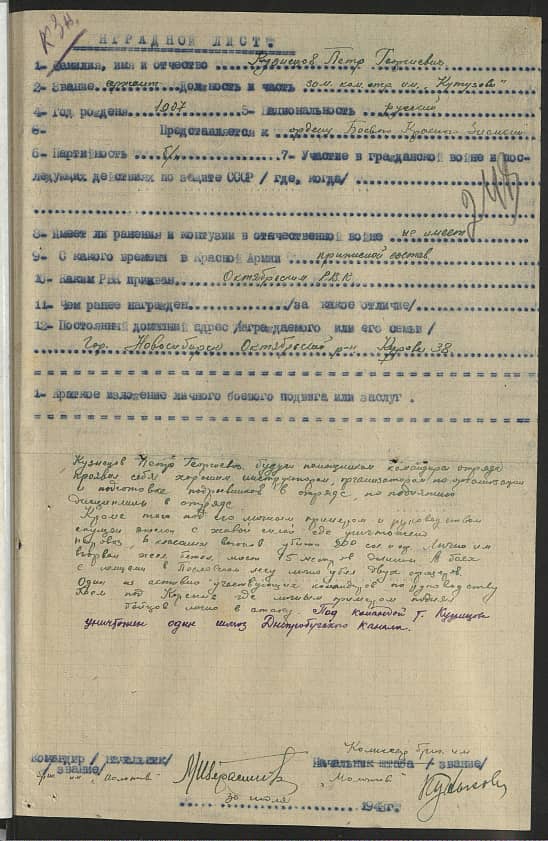 НГРАДНОЙ ЛИСТ.
1- Фамилия, имя и отчество Кузнецов Петр Георгиевич
2- Звание сержант Должность и часть зам. ком. отр им. "Кутузова"
4- Год рождения 1907 5- Национальность русский
6- Представляется к ордену Боевого Красного Знамени
6- Партийность б/п 7- Участие в гражданской войне и пос-
ледующих действиях по защите СССР / где, когда/
8- Имеет ли ранения и контузии в отечественной войне не имеет
9- С какого времени в Красной Армии приписной состав
10- Каким РВК призван Октябрьским РВК
11- Чем ранее награжден /за какое отличие/
12- Постоянный домашний адрес /награждаемого или его семьи/
Гор. Новосибирск Октябрьский р-н Кирова 38
1- Краткое изложение личного боевого подвига или заслуг.
Кузнецов Петр Георгиевич будучи помощником командира отряда
проявил себя хорошим инструктором, организатором по организации
и подготовке подрывников в отряде, по поднятию
дисциплины в отряде.
Кроме того под его личным примером и руководством
спущен эшелон с живой силой где уничтожен
паровоз, вагонов убито 200 Лично им
взорван мост 15 метров длинны. В боях
в лесу лично убил двух
Один из активно участвующих командиров по руководству
боем под где личным примером поднял
бойцов лично в атаку. Под командой т. Кузнецова
уничтожен один шлюз Днепробугского канала.
Комиссар бриг. им
Командир /Начальник/ Начальник штаба /звание/
/звание/ бриг. им. "Молотова" "Молотова"
30 июля 194 г.